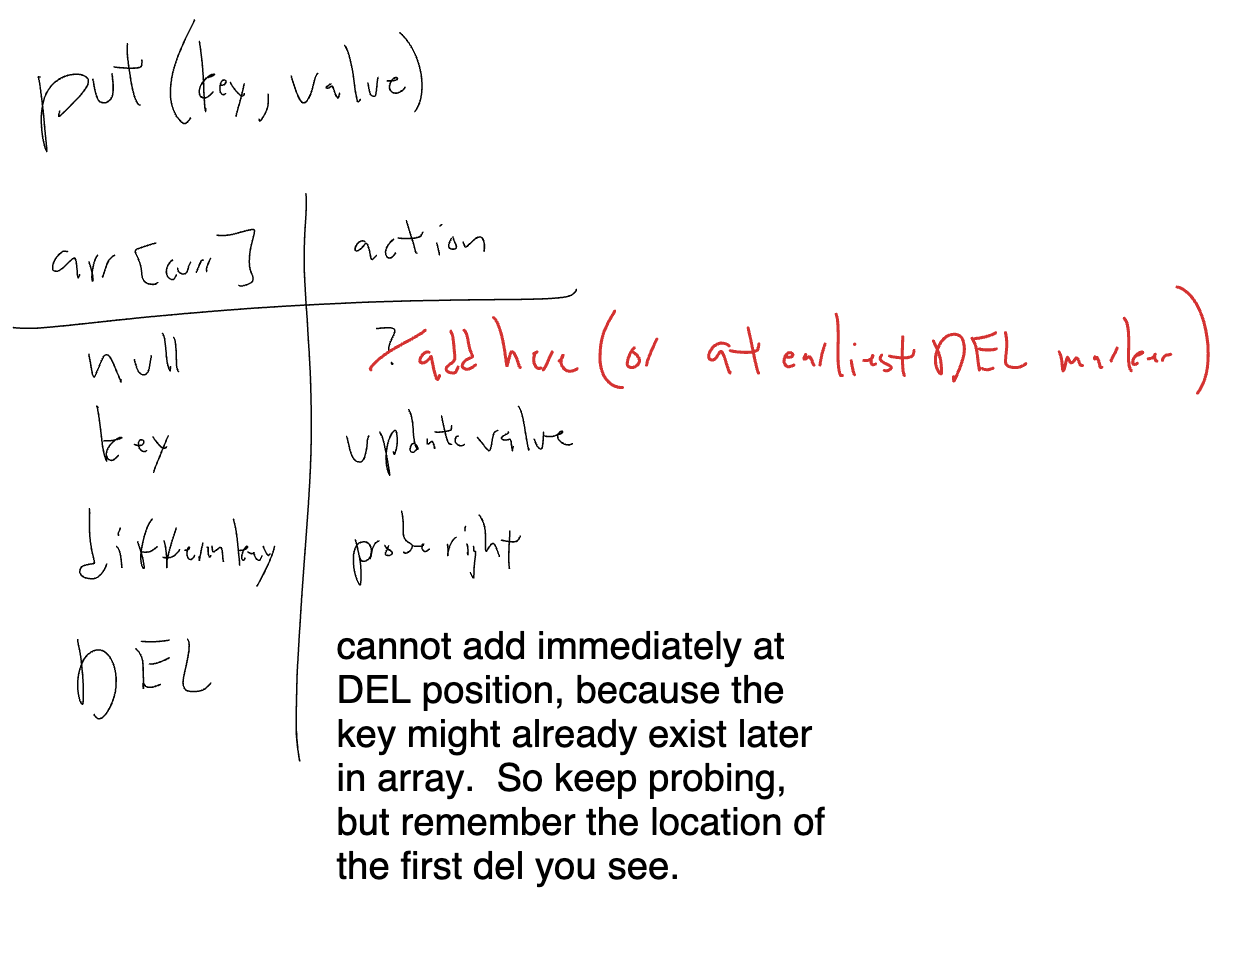 put(key, value)
arr[curr] action
null ? add here (or at earliest DEL marker)
key update value
different key probe right
DEL
cannot add immediately at
DEL position, because the
key might already exist later
in array.  So keep probing,
but remember the location of
the first del you see.